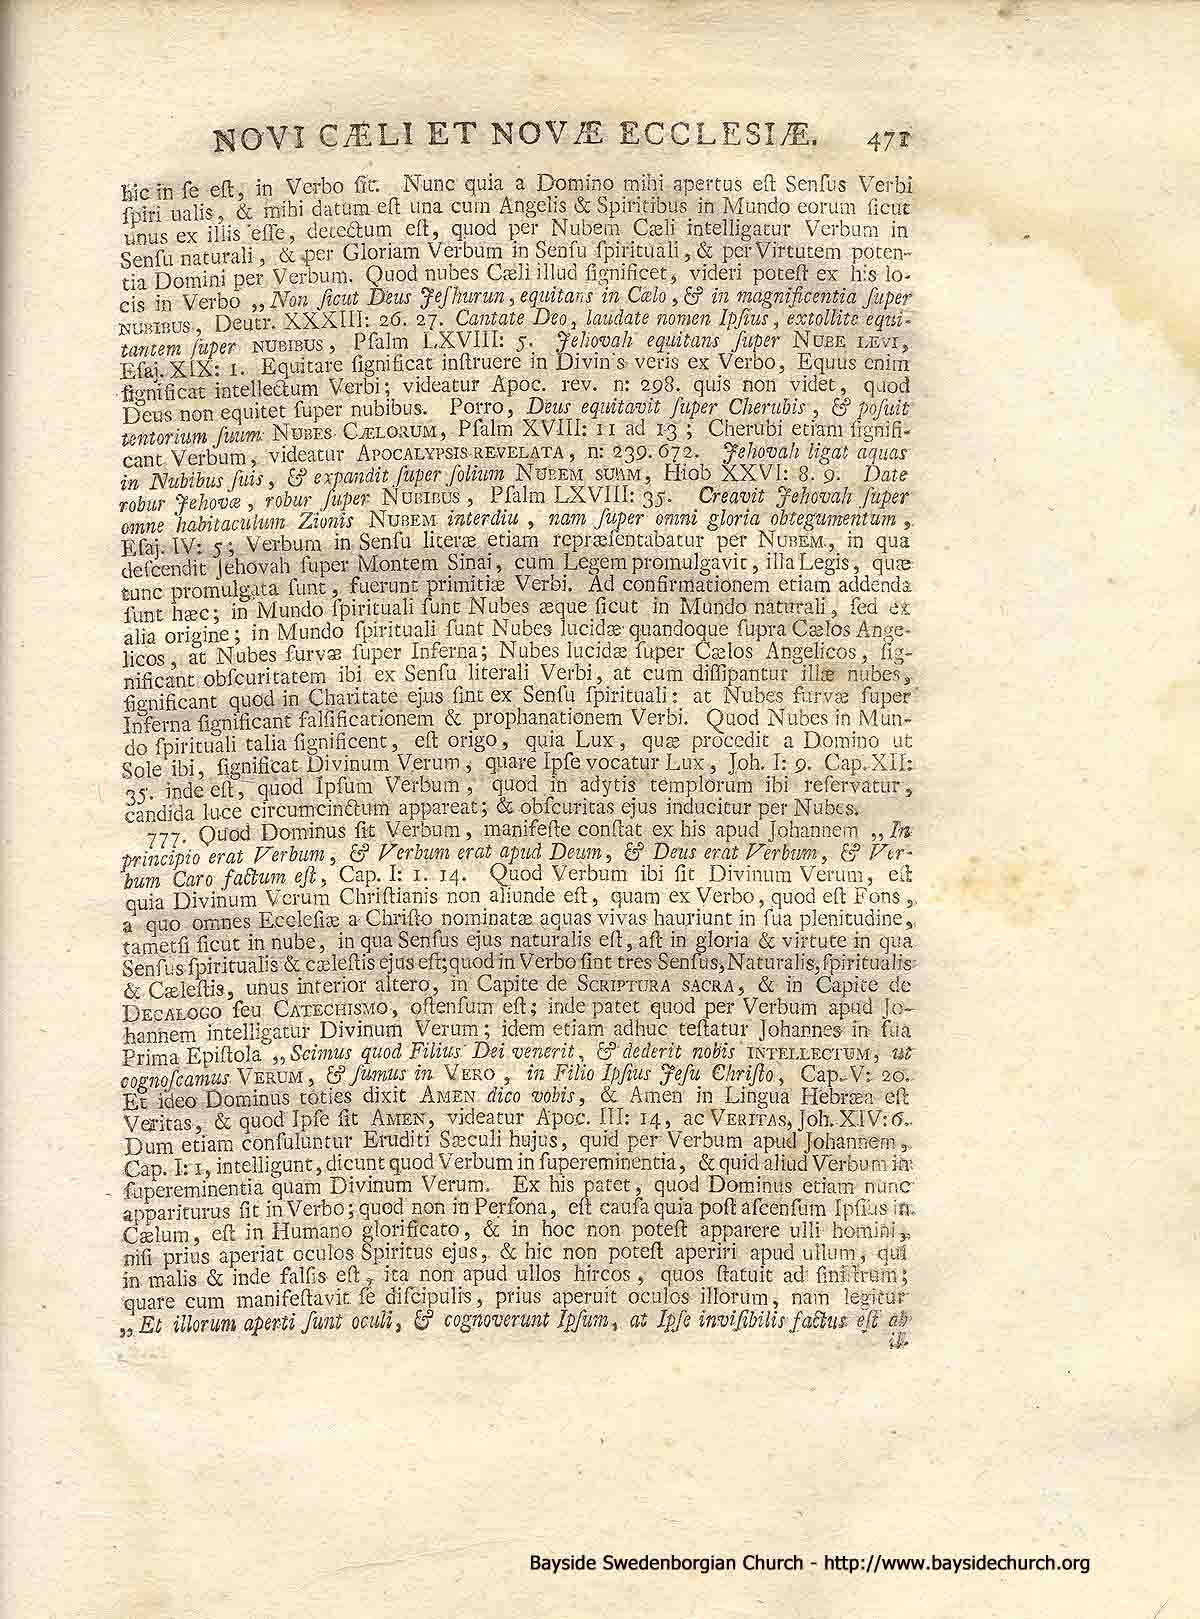 NOVI CÆLI ET NOVÆ ECCLESIÆ. 471
hic in ſe eſt, in Verbo ſit. Nunc quia a Domino mihi apertus eſt Senſus Verbi
ſpiri ualis, & mihi datum eſt una cum Angelis & Spiritibus in Mundo eorum ſicut
unus ex illis eſſe, detectum eſt, quod per Nubem Cæli intelligatur Verbum in
Senſu naturali, & per Gloriam Verbum in Senſu ſpirituali, & per Virtutem poten-
tia Domini per Verbum. Quod nubes Cæli illud ſignificet, videri poteſt ex his lo-
cis in Verbo „Non ſicut Deus Jeſhurun, equitans in Cælo, & in magnificentia ſuper
NUBIBUS, Deutr. XXXIII: 26. 27. Cantate Deo, laudate nomen Ipſius, extollite equi-
tantem ſuper NUBIBUS, Pſalm LXVIII: 5. Jehovah equitans ſuper NUBE LEVI,
Eſaj. XIX: 1. Equitare ſignificat inſtruere in Divin s veris ex Verbo, Equus enim
ſignificat intellectum Verbi; videatur Apoc. rev. n: 298. quis non videt, quod
Deus non equitet ſuper nubibus. Porro, Deus equitavit ſuper Cherubis, & poſuit
tentorium ſuum NUBES CÆLORUM, Pſalm XVIII: 11 ad 13; Cherubi etiam ſignifi-
cant Verbum, videatur APOCALYPSIS REVELATA, n: 239. 672. Jehovah ligat aquas
in Nubibus ſuis, & expandit ſuper ſolium NUBEM SUAM, Hiob XXVI: 8. 9. Date
robur Jehovæ, robur ſuper NUBIBUS, Pſalm LXVIII: 35. Creavit Jehovah ſuper
omne habitaculum Zionis NUBEM interdiu, nam ſuper omni gloria obtegumentum,
Eſaj. IV: 5; Verbum in Senſu literæ etiam repræſentabatur per NUBEM, in qua
deſcendit Jehovah ſuper Montem Sinai, cum Legem promulgavit, illa Legis, quæ
tunc promulgata ſunt, fuerunt primitiæ Verbi. Ad confirmationem etiam addenda
ſunt hæc; in Mundo ſpirituali ſunt Nubes æque ſicut in Mundo naturali, ſed ex
alia origine; in Mundo ſpirituali ſunt Nubes lucidæ quandoque ſupra Cælos Ange-
licos, at Nubes furvæ ſuper Inferna; Nubes lucidæ ſuper Cælos Angelicos, ſig-
nificant obſcuritatem ibi ex Senſu literali Verbi, at cum diſſipantur illæ nubes,
ſignificant quod in Charitate ejus ſint ex Senſu ſpirituali: at Nubes furvæ ſuper
Inferna ſignificant falſificationem & prophanationem Verbi. Quod Nubes in Mun-
do ſpirituali talia ſignificent, eſt origo, quia Lux, quæ procedit a Domino ut
Sole ibi, ſignificat Divinum Verum, quare Ipſe vocatur Lux, Joh. I: 9. Cap. XII:
35. inde eſt, quod Ipſum Verbum, quod in adytis templorum ibi reſervatur,
candida luce circumcinctum appareat; & obſcuritas ejus inducitur per Nubes.
777. Quod Dominus ſit Verbum, manifeſte conſtat ex his apud Johannem „In
principio erat Verbum, & Verbum erat apud Deum, & Deus erat Verbum, & Ver-
bum Caro factum eſt, Cap. I: 1. 14. Quod Verbum ibi ſit Divinum Verum, eſt
quia Divinum Verum Chriſtianis non aliunde eſt, quam ex Verbo, quod eſt Fons,
a quo omnes Eccleſiæ a Chriſto nominatæ aquas vivas hauriunt in ſua plenitudine,
tametſi ſicut in nube, in qua Senſus ejus naturalis eſt, aſt in gloria & virtute in qua
Senſus ſpiritualis & cæleſtis ejus eſt; quod in Verbo ſint tres Senſus, Naturalis, ſpiritualis
& Cæleſtis, unus interior altero, in Capite de SCRIPTURA SACRA, & in Capite de
DECALOGO ſeu CATECHISMO, oſtenſum eſt; inde patet quod per Verbum apud Jo-
hannem intelligatur Divinum Verum; idem etiam adhuc teſtatur Johannes in ſua
Prima Epiſtola „Scimus quod Filius Dei venerit, & dederit nobis INTELLECTUM, ut
cognoſcamus VERUM, & ſumus in VERO, in Filio Ipſius Jeſu Chriſto, Cap. V: 20.
Et ideo Dominus toties dixit AMEN dico vobis, & Amen in Lingua Hebræa eſt
Veritas, & quod Ipſe ſit AMEN, videatur Apoc. III: 14, ac VERITAS, Joh. XIV: 6.
Dum etiam conſuluntur Eruditi Sæculi hujus, quid per Verbum apud Johannem,
Cap. I: 1, intelligunt, dicunt quod Verbum in ſupereminentia, & quid aliud Verbum in
ſupereminentia quam Divinum Verum. Ex his patet, quod Dominus etiam nunc
appariturus ſit in Verbo; quod non in Perſona, eſt cauſa quia poſt aſcenſum Ipſius in
Cælum, eſt in Humano glorificato, & in hoc non poteſt apparere ulli homini,
niſi prius aperiat oculos Spiritus ejus, & hic non poteſt aperiri apud ullum, qui
in malis & inde falſis eſt, ita non apud ullos hircos, quos ſtatuit ad ſiniſtrum;
quare cum manifeſtavit ſe diſcipulis, prius aperuit oculos illorum, nam legitur
„Et illorum aperti ſunt oculi, & cognoverunt Ipſum, at Ipſe inviſibilis factus eſt ab
il-
Bayside Swedenborgian Church - http://www.baysidechurch.org